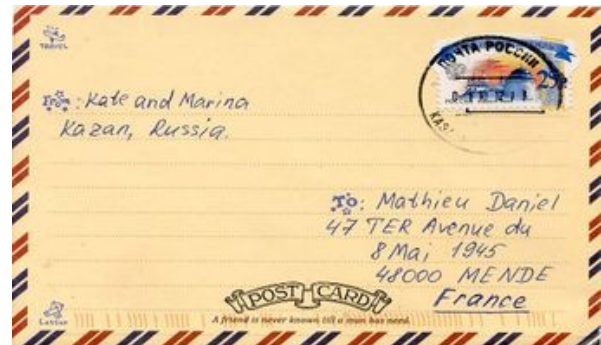 TRAVEL
ПОЧТА РОССИИ
25
From: Kate and Marina
Kazan, Russia.
To: Mathieu Daniel
47 TER Avenue du
8 Mai 1945
48000 MENDE
France
POST CARD
A friend is never known till a man has need.